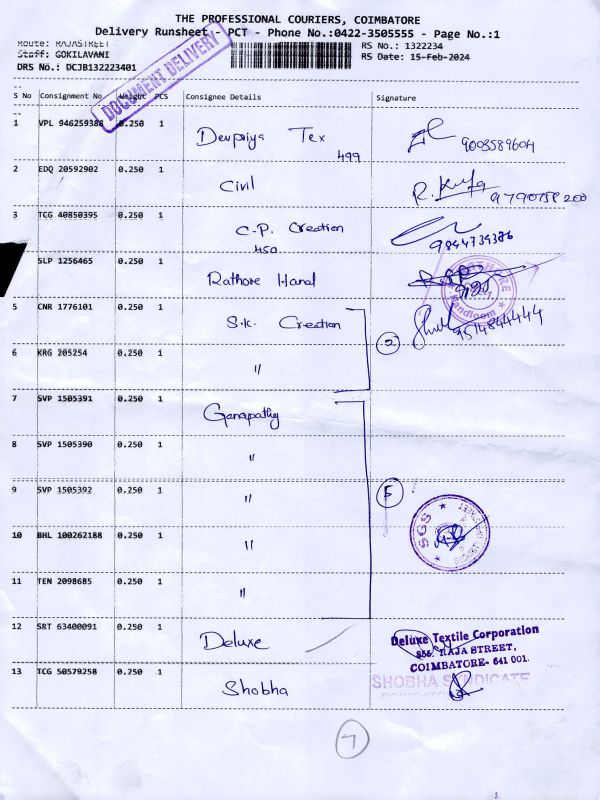 THE PROFESSIONAL COURIERS, COIMBATORE
Delivery Runsheet - PCT - Phone No.:0422-3505555 - Page No.:1
Route: RAJASTREET
RS No.: 1322234
Staff: GOKILAVANI
RS Date: 15-Feb-2024
DRS No.: DCJB132223401
DOCUMENT DELIVERY
S No Consignment No Weight PCS Consignee Details Signature
1 VPL 946259388 0.250 1 Devpriya Tex
499
2 EDQ 20592902 0.250 1 Civil
3 TCG 40850395 0.250 1 C.P. Creation 9844739386
450
SLP 1256465 0.250 1 Rathore Hand
Handloom
5 CNR 1776101 0.250 1 S.K. Creation 2 9514844444
6 KRG 205254 0.250 1 "
7 SVP 1505391 0.250 1 Ganapathy
8 SVP 1505390 0.250 1 "
9 SVP 1505392 0.250 1 " 5
10 BHL 100262188 0.250 1 " SGS
11 TEN 2098685 0.250 1 "
12 SRT 63400091 0.250 1 Deluxe
Deluxe Textile Corporation
RAJA STREET,
COIMBATORE- 641 001.
13 TCG 50579258 0.250 1 Shobha
SHOBHA SYNDICATE
7